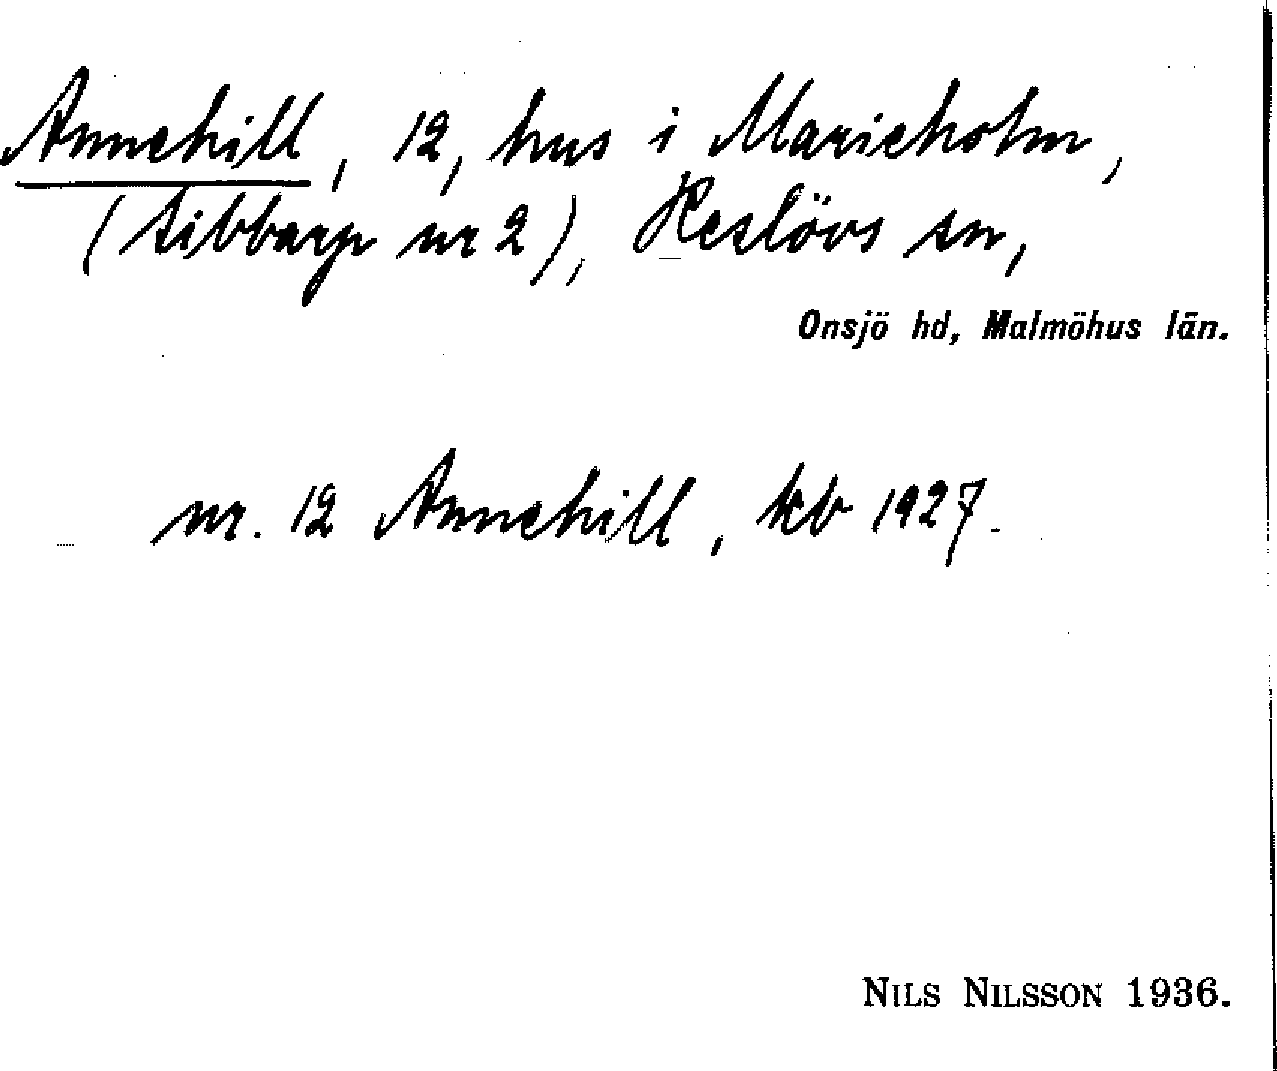 Annehill, 12, hus i Marieholm,
(Sibbarp nr 2), Reslövs sn,
Onsjö hd, Malmöhus län.
nr. 12 Annehill, kb 1927.
NILS NILSSON 1936.